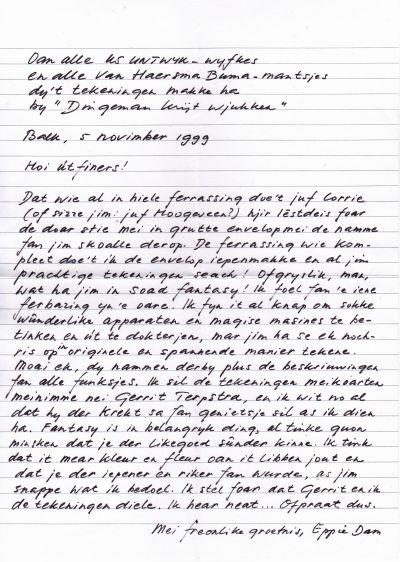 Oan alle KS UNTWYK-wyfkes
en alle Van Haersma Buma-mantsjes
dy't tekeningen makke ha
by "Dingeman krijt wjukken"
Balk, 5 novimber 1999
Hoi útfiners!
Dat wie al in hiele ferrassing doe't juf Corrie
(of sizze jim: juf Hoogeveen?) hjir lêstdeis foar
de doar stie mei in grutte envelop mei de namme
fan jim skoalle derop. De ferrassing wie kom-
pleet doe't ik de envelop iepenmakke en al jim
prachtige tekeningen seach! Ofgryslik, man,
wat ha jim in soad fantasy! Ik foel fan 'e iene
ferbazing yn 'e oare. Ik fyn it al knap om sokke
wûnderlike apparaten en magise masines te be-
tinken en út te dokterjen, mar jim ha se ek noch-
ris op in originele en spannende manier tekene.
Moai ek, dy nammen derby plus de beskriuwingen
fan alle funksjes. Ik sil de tekeningen meikoarten
meinimme nei Gerrit Terpstra, en ik wit no al
dat hy der krekt sa fan genietsje sil as ik dien
ha. Fantasy is in belangryk ding, al tinke guon
minsken dat je der likegoed sûnder kinne. Ik tink
dat it mear kleur en fleur oan it libben jout en
dat je der iepener en riker fan wurde, as jim
snappe wat ik bedoel. Ik stel foar dat Gerrit en ik
de tekeningen diele. Ik hear neat... Ofpraat dus.
Mei freonlike groetnis, Eppie Dam